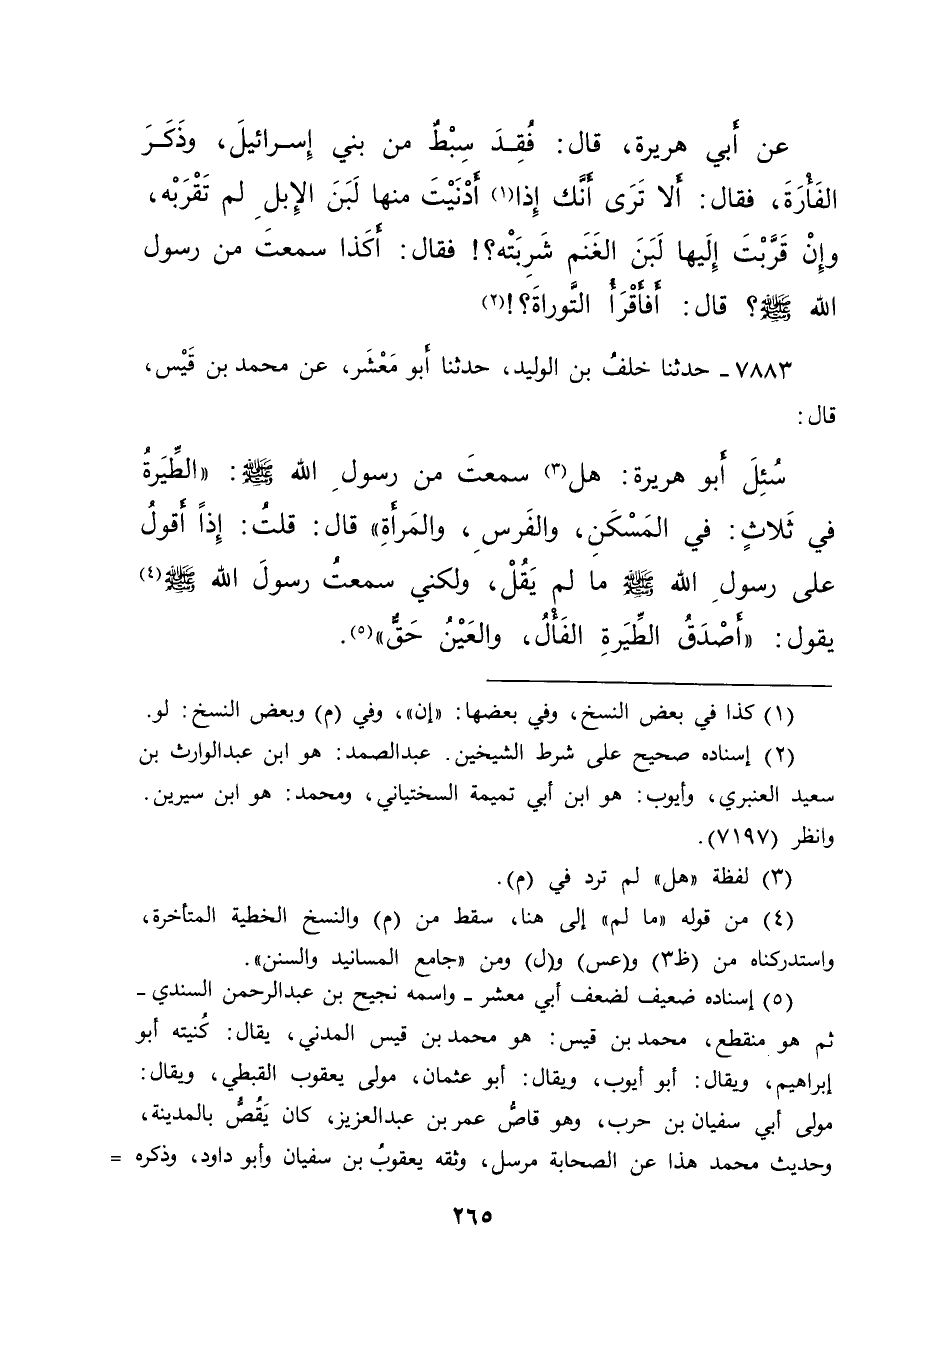 عن أَبي هريرة، قال: فُقِـدَ سِبْطٌ من بني إِسـرائيلَ، وذَكَـرَ
الفَأْرَةَ، فقال: أَلا تَرَى أَنَّك إِذا(١) أَدْنَيْتَ منها لَبَنَ الإِبلِ لم تَقْرَبْه،
وإِنْ قَرَّبْتَ إِليها لَبَنَ الغَنَمِ شَرِبَتْه؟! فقال: أَكَذا سمعتَ من رسول
الله ﷺ؟ قال: أَفأَقْرَأُ التَّوراةَ؟!(٢)
٧٨٨٣ ـ حدثنا خلفُ بن الوليد، حدثنا أَبو مَعْشَر، عن محمد بن قَيْس،
قال:
سُئِلَ أَبو هريرة: هل(٣) سمعتَ من رسولِ الله ﷺ: «الطِّيَرةُ
في ثَلاثٍ: في المَسْكَنِ، والفَرسِ، والمَرأَةِ» قال: قلتُ: إِذاً أَقولُ
على رسولِ الله ﷺ ما لم يَقُلْ، ولكني سمعتُ رسولَ الله ﷺ(٤)
يقول: «أَصْدَقُ الطِّيَرةِ الفَأْلُ، والعَيْنُ حَقٌّ»(٥).
(١) كذا في بعض النسخ، وفي بعضها: «إن»، وفي (م) وبعض النسخ: لو.
(٢) إسناده صحيح على شرط الشيخين. عبدالصمد: هو ابن عبدالوارث بن
سعيد العنبري، وأيوب: هو ابن أبي تميمة السختياني، ومحمد: هو ابن سيرين.
وانظر (٧١٩٧).
(٣) لفظة «هل» لم ترد في (م).
(٤) من قوله «ما لم» إلى هنا، سقط من (م) والنسخ الخطية المتأخرة،
واستدركناه من (ظ٣) و(عس) و(ل) ومن «جامع المسانيد والسنن».
(٥) إسناده ضعيف لضعف أبي معشر ـ واسمه نجيح بن عبدالرحمن السندي ـ
ثم هو منقطع، محمد بن قيس: هو محمد بن قيس المدني، يقال: كُنيته أبو
إبراهيم، ويقال: أبو أيوب، ويقال: أبو عثمان، مولى يعقوب القبطي، ويقال:
مولى أبي سفيان بن حرب، وهو قاصُّ عمر بن عبدالعزيز، كان يَقُصُّ بالمدينة،
وحديث محمد هذا عن الصحابة مرسل، وثقه يعقوبُ بن سفيان وأبو داود، وذكره =
٢٦٥